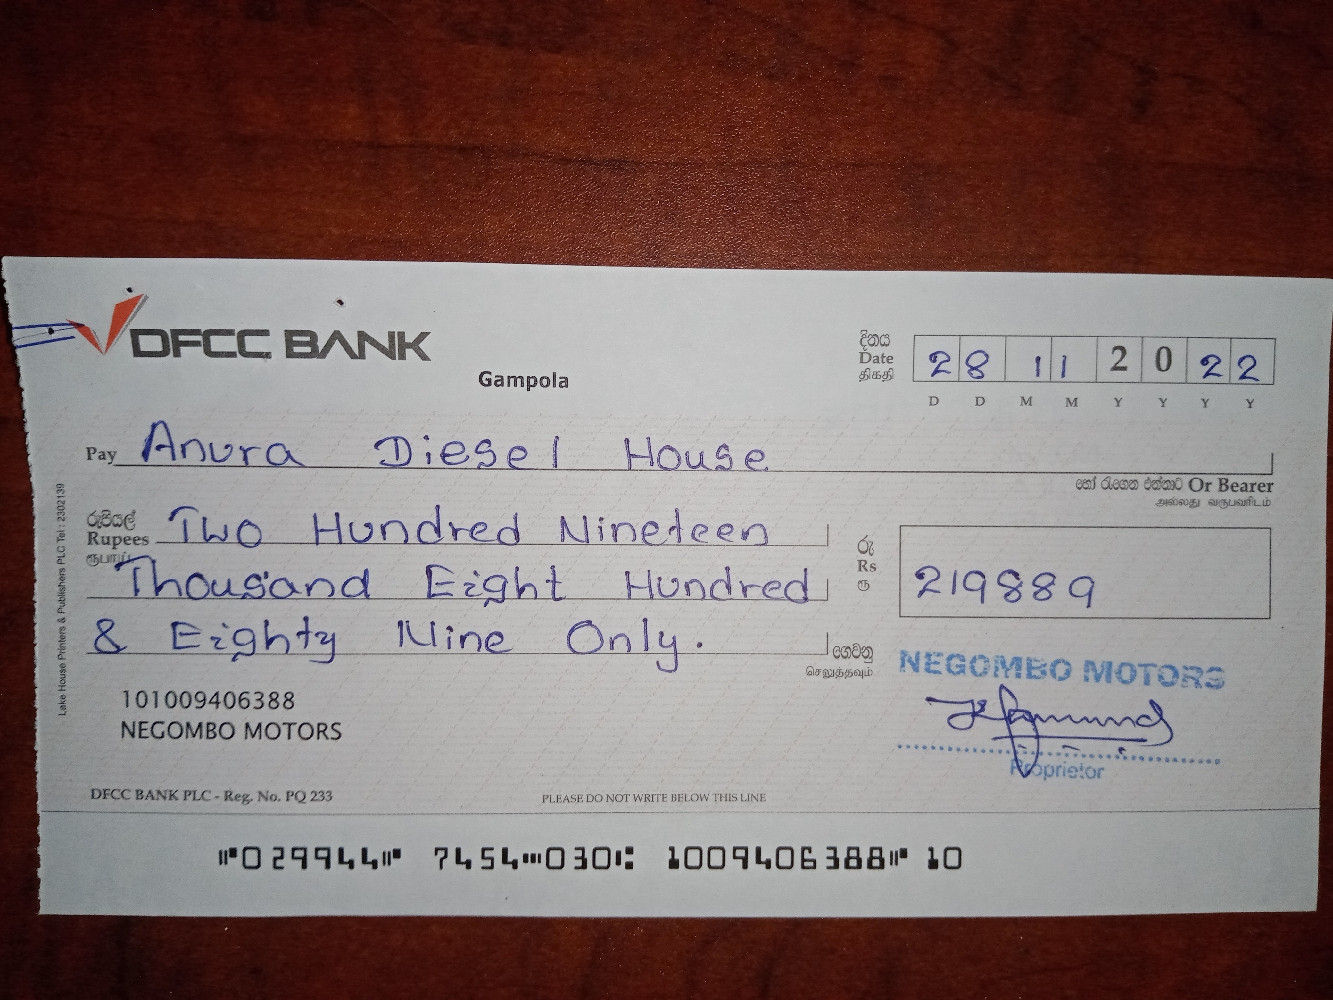 DFCC BANK
Gampola
දිනය
Date
திகதி
28 11 2022
D D M M Y Y Y Y
Pay Anura Diesel House
හෝ රැගෙන එන්නාට Or Bearer
அல்லது வருபவரிடம்
රුපියල්
Rupees Two Hundred Nineteen
ரூபாய் Thousand Eight Hundred
& Eighty Nine Only.
රු
Rs
ரூ
219889
ගෙවනු
செலுத்தவும்
NEGOMBO MOTORS
Proprietor
101009406388
NEGOMBO MOTORS
Lake House Printers & Publishers PLC Tel : 2302139
DFCC BANK PLC - Reg. No. PQ 233
PLEASE DO NOT WRITE BELOW THIS LINE
⑈029944⑈ 7454⑉030⑆ 1009406388⑈ 10